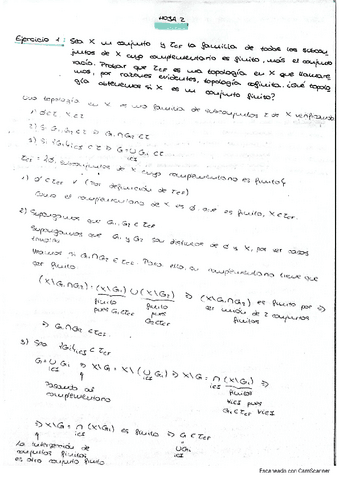 HOJA 2
Ejercicio 1: Sea X un conjunto y τcf la familia de todos los subcon
juntos de X cuyo complementario es finito, más el conjunto
vacío. Probar que τcf es una topología en X que llamare
mos, por razones evidentes, topología cofinita. ¿Qué topolo
gía obtenemos si X es un conjunto finito?
Una topología en X es una familia de subconjuntos τ de X verificando
1) ∅∈τ, X∈τ
2) Si G₁,G₂∈τ ⇒ G₁∩G₂∈τ
3) Si {Gi}i∈I ⊂ τ ⇒ G=∪Gi ∈τ
i∈I
τcf = {∅, subconjuntos de X cuyo complementario es finito}
1) ∅∈τcf ✓ (Por definición de τcf)
Como el complementario de X es ∅ que es finito, X∈τcf.
2) Supongamos que G₁,G₂∈τcf
Supongamos que G₁ y G₂ son distintos de ∅ y X, por ser casos
triviales
Veamos si G₁∩G₂∈τcf. Para ello, su complementario tiene que
ser finito.
(X\G₁∩G₂) = (X\G₁) ∪ (X\G₂) ⇒ (X\G₁∩G₂) es finito por ⇒
finito finito ser unión de 2 conjuntos
pues G₁∈τcf pues finitos
G₂∈τcf
⇒ G₁∩G₂∈τcf.
3) Sea {Gi}i∈I ⊂ τcf
G=∪Gi ⇒ X\G = X\(∪Gi) ⇒ X\G = ∩(X\Gi) ⇒
i∈I i∈I i∈I
Pasando al finitos
complementario ∀i∈I pues
Gi∈τcf ∀i∈I
⇒ X\G = ∩(X\Gi) es finito ⇒ G∈τcf
i∈I
La intersección de ∪Gi
conjuntos finitos i∈I
es otro conjunto finito
Escaneado con CamScanner